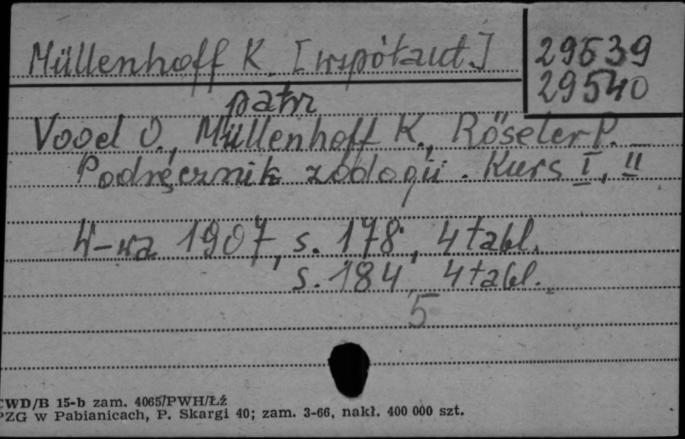 Müllenhoff K. [współaut.]
29539
29540
patrz
Vogel O., Müllenhoff K., Röseler P.
Podręcznik zoologii. Kurs I, II
W-wa 1907, s. 178, 4 tabl.
s. 184, 4 tabl.
5
CWD/B 15-b zam. 4065/PWH/Łź
PZG w Pabianicach, P. Skargi 40; zam. 3-66, nakł. 400 000 szt.